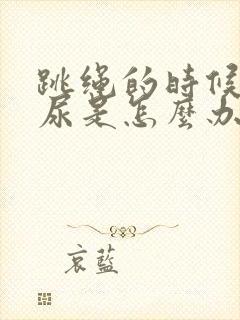 跳绳的時候
尿是怎麼办
哀藍